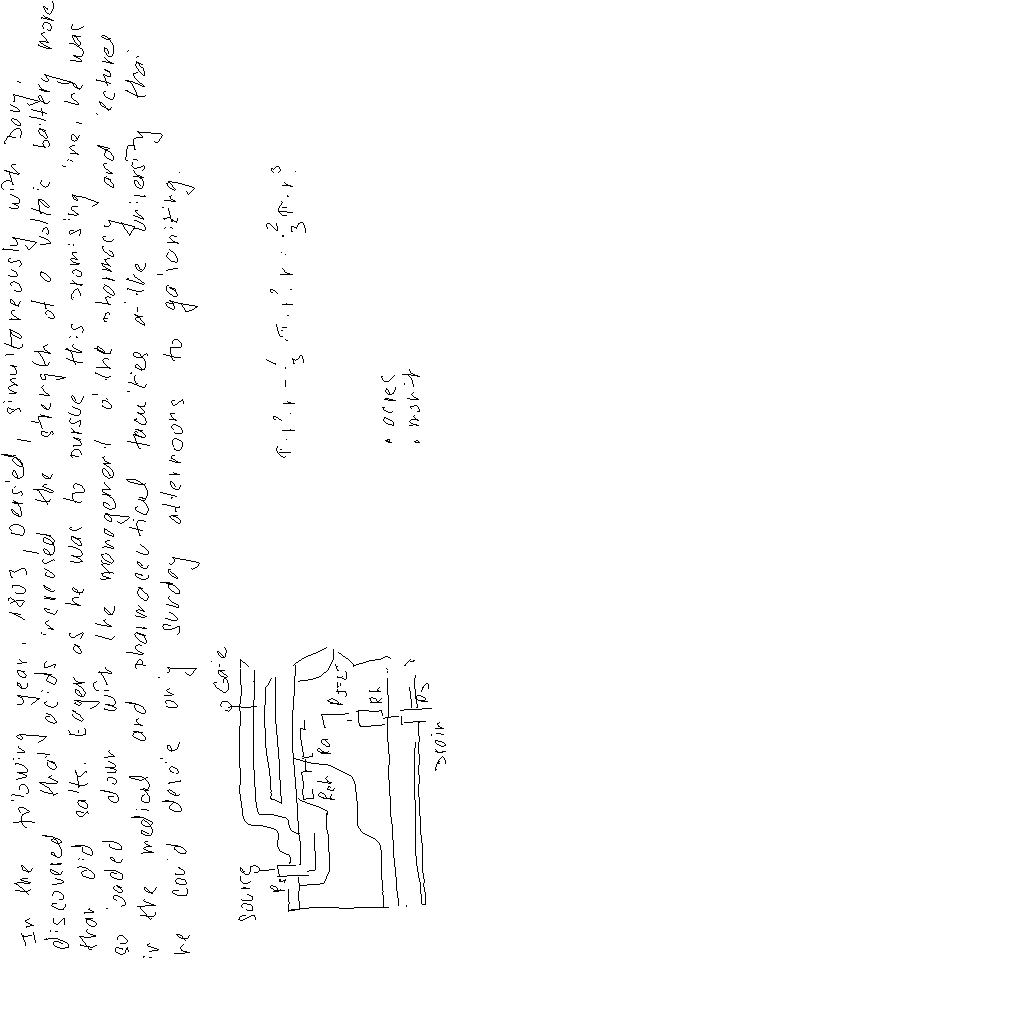 In the following year, 1803, Oersted, simultaneously with Davy,
discovered that acids increased the strength of a voltaic battery more
than did salts. Eager as he was to pursue this promising line, he was
so loaded down with the management of the pharmacy and lectures
in the medical and pharmaceutical faculties at the University that
he could devote only Sunday afternoons to galvanizing.
π·r²·r - 1/3·π·r²·r = 2/3 π·r³
• acres
Source
Gate
Rch Ra
Drain